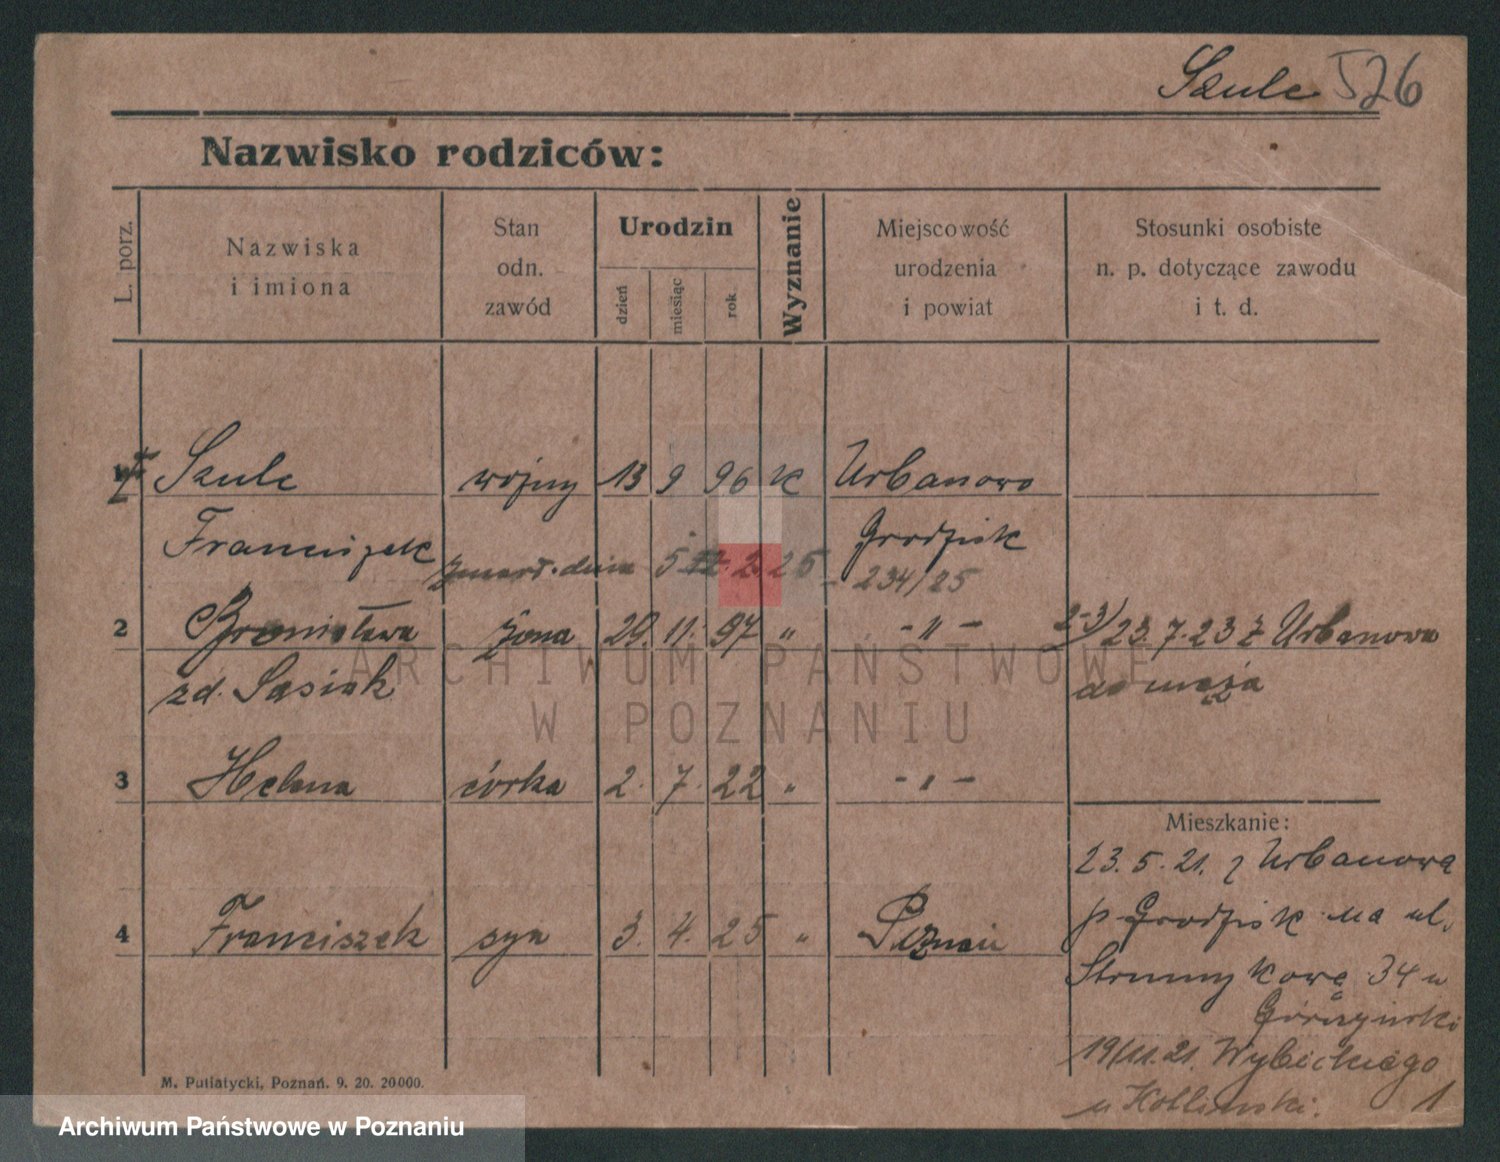 Szulc 526
Nazwisko rodziców:
L. porz.
Nazwiska
i imiona
Stan
odn.
zawód
Urodzin
dzień
miesiąc
rok
Wyznanie
Miejscowość
urodzenia
i powiat
Stosunki osobiste
n. p. dotyczące zawodu
i t. d.
Szulc 13 9 96 k Urbanowo
Franciszek Grodzisk
zmarł dnia 5 2. 25 234/25
2 Bronisława żona 29. 11. 97 " -"- 2-3/ 23.7.23 z Urbanowa
zd. Sąsiak do męża
3 Helena córka 2. 7. 22 " -"-
Mieszkanie:
23.5.21. z Urbanowa
p. Grodzisk na ul.
4 Franciszek syn 3. 4. 25 " Poznań
Strumykową 34 u
Górczyński
19/11.21. Wybickiego 1
u
M. Putiatycki, Poznań. 9. 20. 20000.
ARCHIWUM PAŃSTWOWE
W POZNANIU
Archiwum Państwowe w Poznaniu